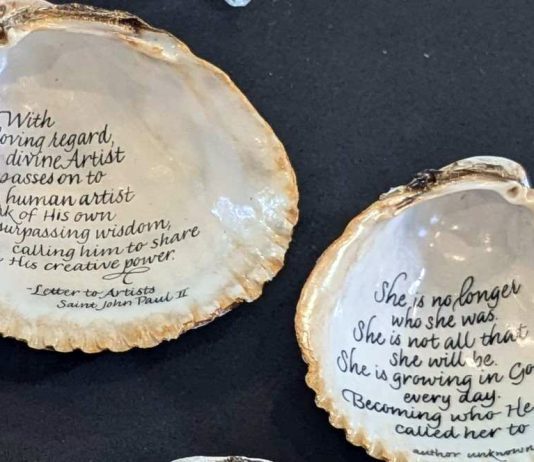 With
loving regard,
divine Artist
passes on to
human artist
of His own
surpassing wisdom,
calling him to share
His creative power.
-Letter to Artists
Saint John Paul II
She is no longer
who she was.
She is not all that
she will be.
She is growing in
every day.
Becoming who He
called her to
author unknown